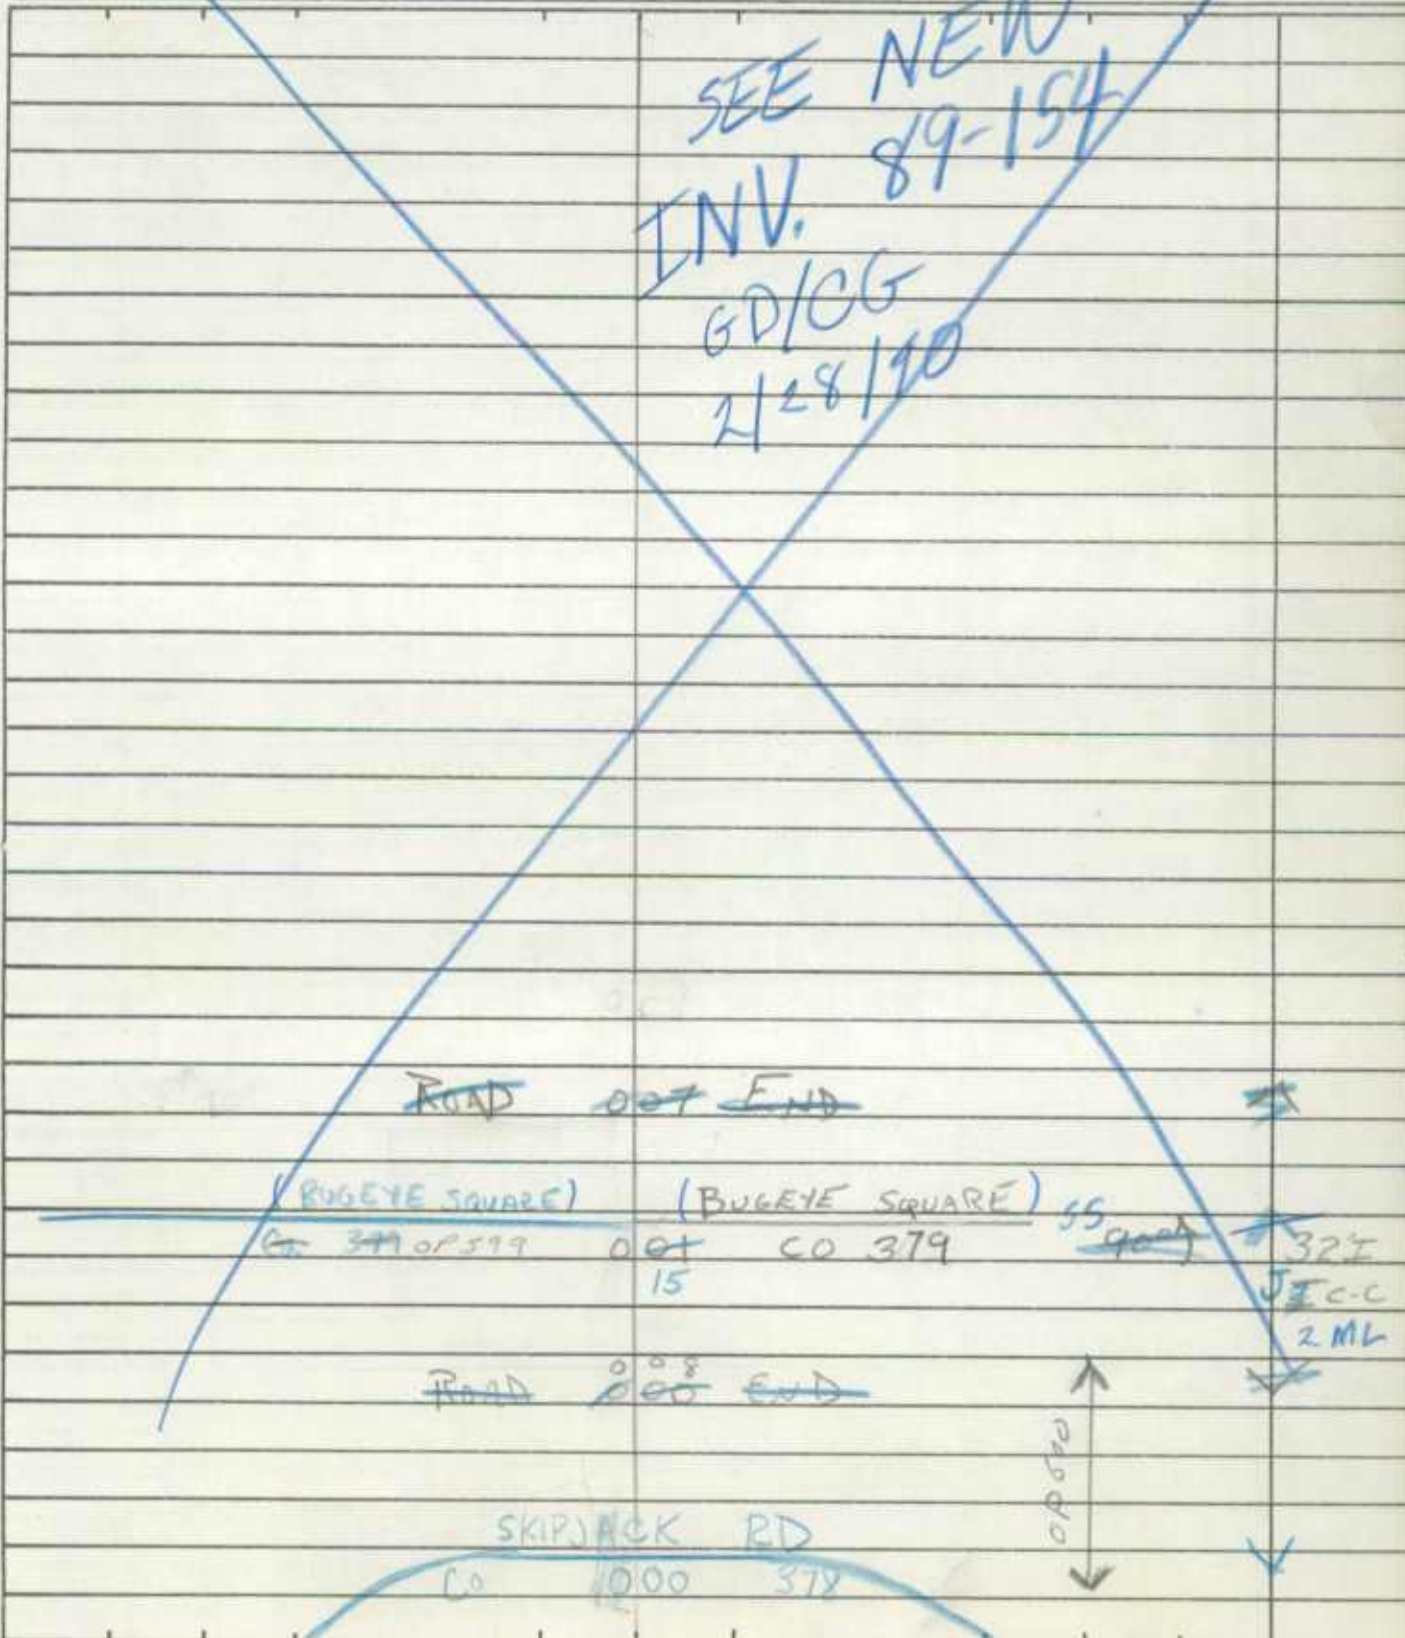 SEE NEW
INV. 89-154
GD/CG
2/28/90
ROAD 007 END
(BUGEYE SQUARE) (BUGEYE SQUARE) SS
OP 599 001 CO 379 32'I
15 C-C
2 ML
ROAD 008 END
OP 600
SKIPJACK RD
CO 000 378